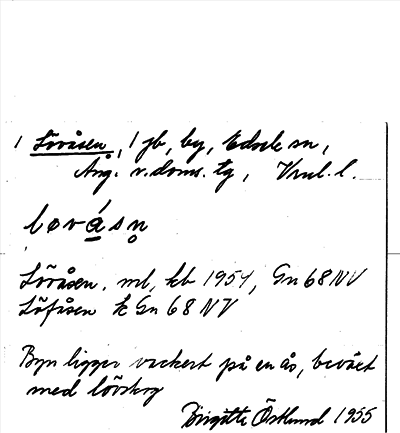 1 Lövåsen, 1 jb, by, Edsele sn,
Ång. v. doms. tg, Vnl. l.
lovásn̥
Lövåsen. ml, kb 1954, Gn 68 NV
Löfåsen k Gn 68 NV
Byn ligger vackert på en ås, beväxt
med lövskog
Birgitte Östlund 1955